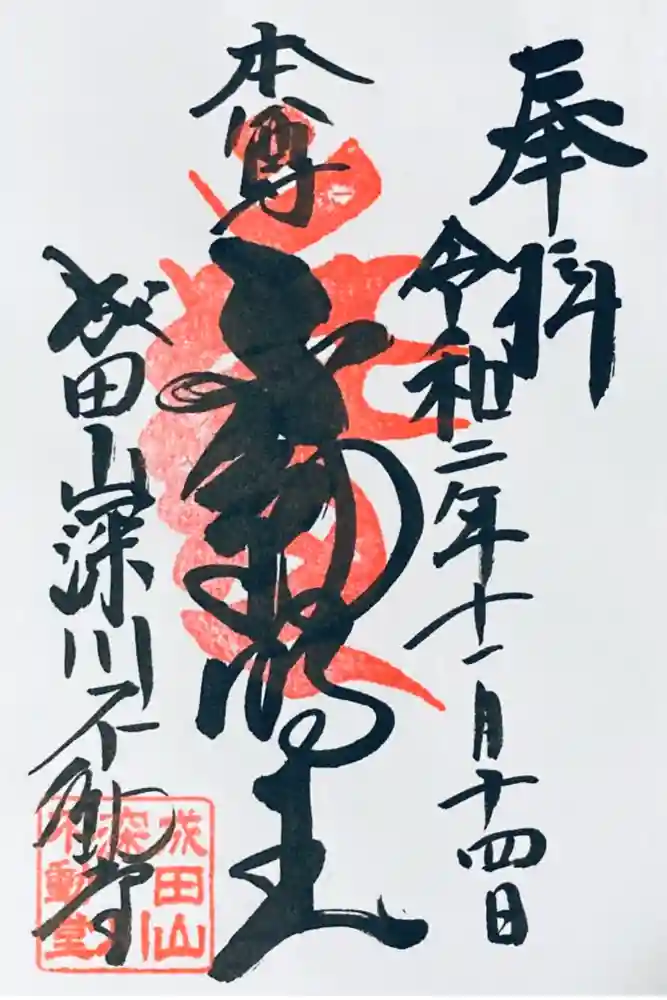 奉拝
令和二年十一月十四日
本尊
不動明王
成田山深川不動堂
成田山
深川
不動堂